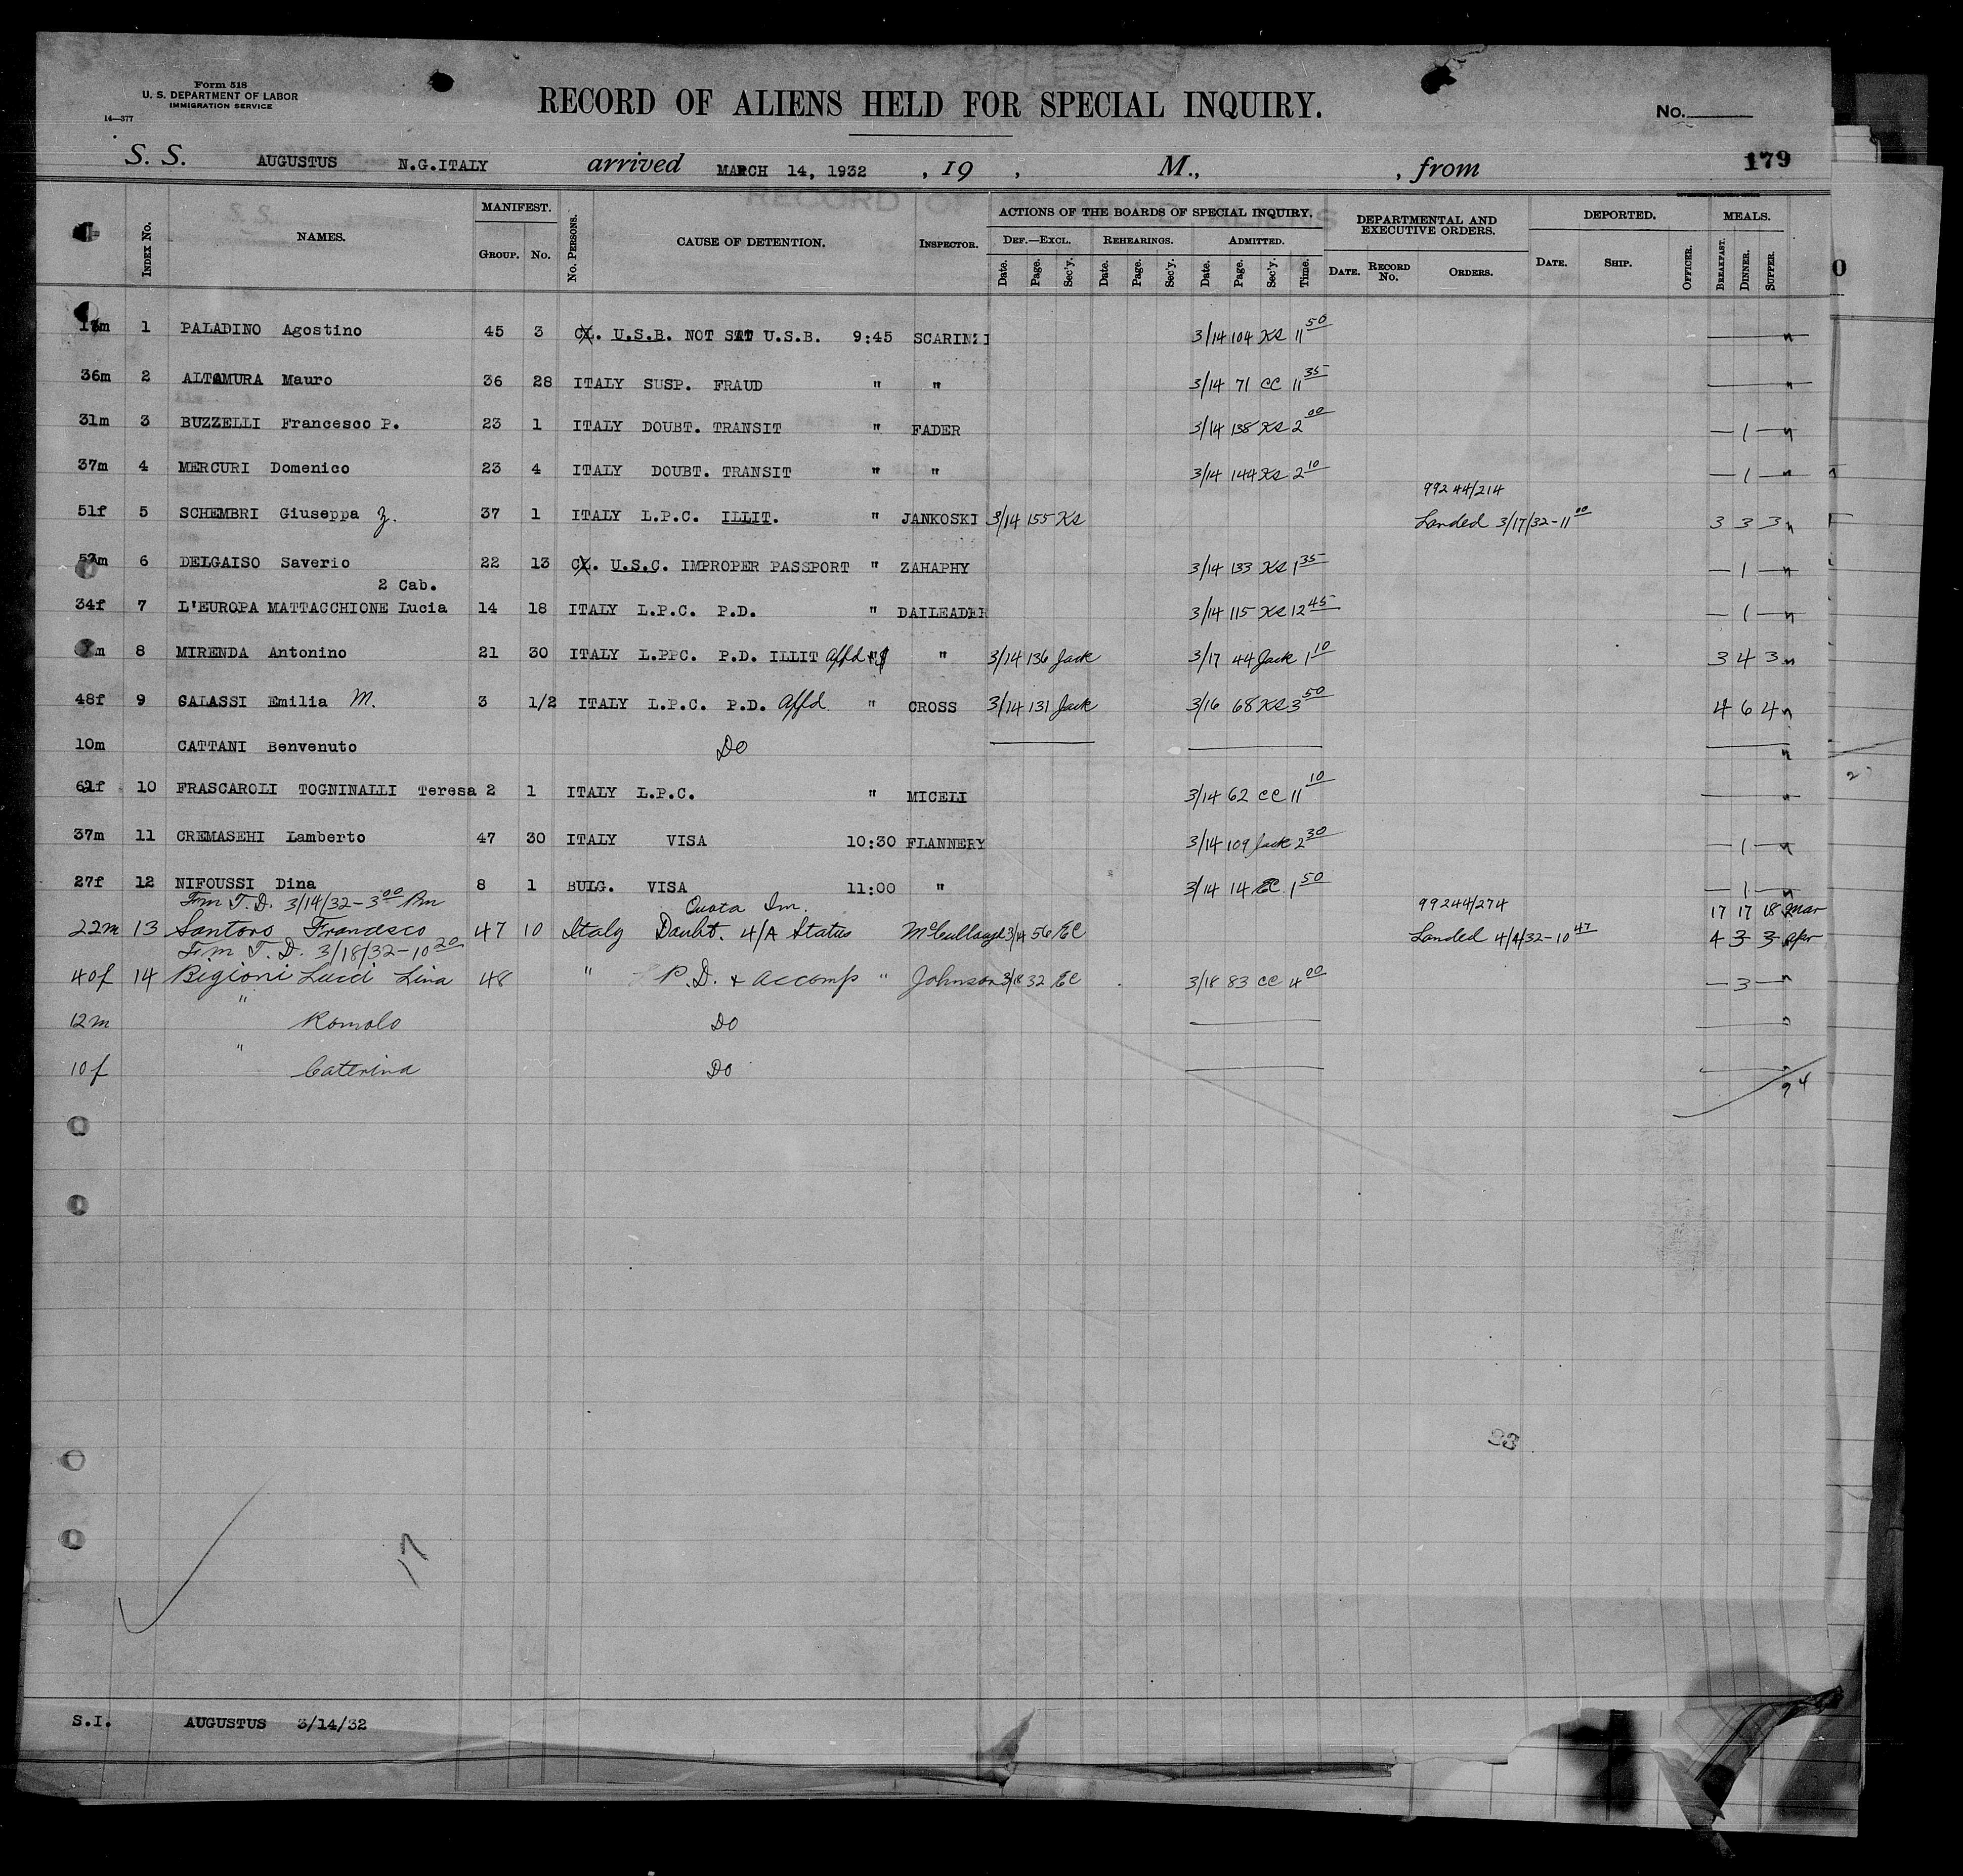 Form 518
U. S. DEPARTMENT OF LABOR
IMMIGRATION SERVICE
14—377
RECORD OF ALIENS HELD FOR SPECIAL INQUIRY.
No.
S. S. AUGUSTUS N.G.ITALY arrived MARCH 14, 1932 , 19 , M., , from
179
INDEX No. NAMES. MANIFEST. GROUP. No. No. PERSONS. CAUSE OF DETENTION. INSPECTOR. ACTIONS OF THE BOARDS OF SPECIAL INQUIRY. DEF.—EXCL. Date. Page. Sec'y. REHEARINGS. Date. Page. Sec'y. ADMITTED. Date. Page. Sec'y. Time. DEPARTMENTAL AND EXECUTIVE ORDERS. DATE. RECORD No. ORDERS. DEPORTED. DATE. SHIP. OFFICER. MEALS. BREAKFAST. DINNER. SUPPER.
1 PALADINO Agostino 45 3 U.S.B. NOT U.S.B. 9:45 SCARINZI 3/14 104 KS 11 50
36m 2 ALTAMURA Mauro 36 28 ITALY SUSP. FRAUD " " 3/14 71 CC 11 35
31m 3 BUZZELLI Francesco P. 23 1 ITALY DOUBT. TRANSIT " FADER 3/14 138 KS 2 00 — 1 —
37m 4 MERCURI Domenico 23 4 ITALY DOUBT. TRANSIT " " 3/14 144 KS 2 10 — 1 —
99244/214
51f 5 SCHEMBRI Giuseppa Z. 37 1 ITALY L.P.C. ILLIT. " JANKOSKI 3/14 155 KS Landed 3/17/32-11 00 3 3 3
6 DELGAISO Saverio 22 13 U.S.C. IMPROPER PASSPORT " ZAHAPHY 3/14 133 KS 1 35 — 1 —
2 Cab.
34f 7 L'EUROPA MATTACCHIONE Lucia 14 18 ITALY L.P.C. P.D. " DAILEADER 3/14 115 KS 12 45 — 1 —
8 MIRENDA Antonino 21 30 ITALY L.PPC. P.D. ILLIT Affd " " 3/14 136 Jack 3/17 44 Jack 1 10 3 4 3
48f 9 GALASSI Emilia M. 3 1/2 ITALY L.P.C. P.D. Affd. " CROSS 3/14 131 Jack 3/16 68 KS 3 50 4 6 4
10m CATTANI Benvenuto DO
61f 10 FRASCAROLI TOGNINALLI Teresa 2 1 ITALY L.P.C. " MICELI 3/14 62 CC 11 10
37m 11 CREMASEHI Lamberto 47 30 ITALY VISA 10:30 FLANNERY 3/14 109 Jack 2 30 — 1 —
27f 12 NIFOUSSI Dina 8 1 BULG. VISA 11:00 " 3/14 14 EC 1 50 — 1 —
Frm T.D. 3/14/32-3 00 Pm Quota Im. 99244/274 17 17 18 Mar
22m 13 Santoro Francesco 47 10 Italy Doubt. 4/A Status McCullough 3/14 56 EC Landed 4/4/32-10 47 4 3 3 Apr
Frm T.D. 3/18/32-10 20
40f 14 Bigioni Lucci Lina 48 " P.D. + accomp " Johnson 3/18 32 EC 3/18 83 CC 4 00 — 3 —
12m " Romolo DO
10f " Caterina DO
94
93
17
S.I. AUGUSTUS 3/14/32